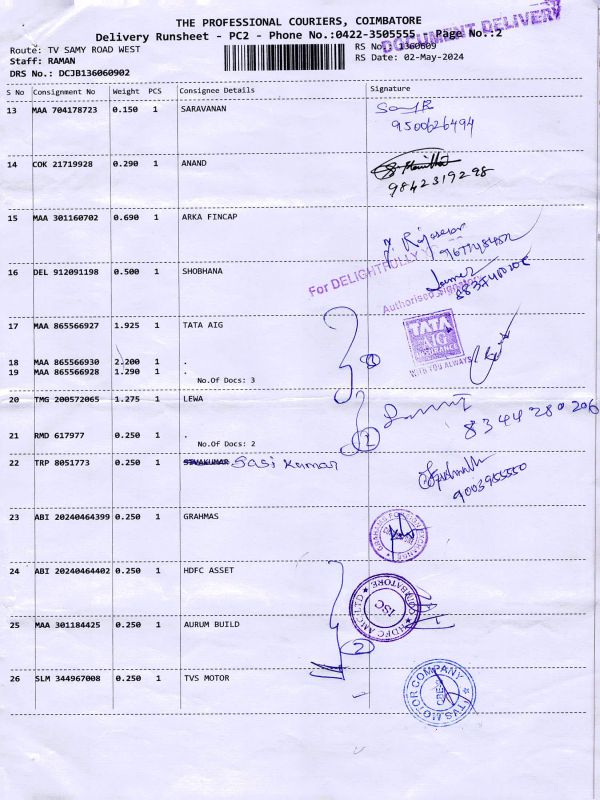 THE PROFESSIONAL COURIERS, COIMBATORE
Delivery Runsheet - PC2 - Phone No.:0422-3505555 Page No.:2
DOCUMENT DELIVERY
Route: TV SAMY ROAD WEST RS No. 1360609
Staff: RAMAN RS Date: 02-May-2024
DRS No.: DCJB136060902
S No Consignment No Weight PCS Consignee Details Signature
13 MAA 704178723 0.150 1 SARAVANAN
9500626494
14 COK 21719928 0.290 1 ANAND
9842319298
15 MAA 301160702 0.690 1 ARKA FINCAP
16 DEL 912091198 0.500 1 SHOBHANA
For DELIGHTFULLY
Authorised Signatory
17 MAA 865566927 1.925 1 TATA AIG
TATA
AIG
INSURANCE
WITH YOU ALWAYS
18 MAA 865566930 2.200 1 .
19 MAA 865566928 1.290 1 .
No.Of Docs: 3
20 TMG 200572065 1.275 1 LEWA
8344280206
21 RMD 617977 0.250 1 .
No.Of Docs: 2
22 TRP 8051773 0.250 1 SIVAKUMAR Sasi Kumar
9003955550
23 ABI 20240464399 0.250 1 GRAHMAS
24 ABI 20240464402 0.250 1 HDFC ASSET
HDFC AMC LTD
ISC
25 MAA 301184425 0.250 1 AURUM BUILD
2
26 SLM 344967008 0.250 1 TVS MOTOR
TVS MOTOR COMPANY